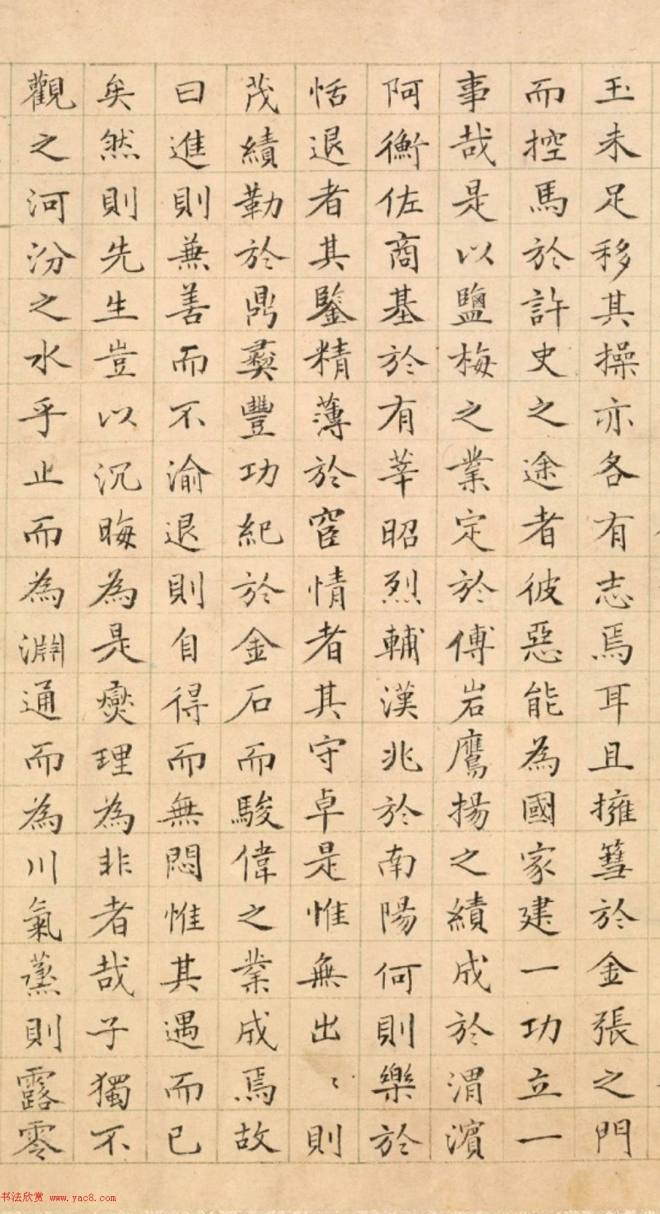 玉未足移其操亦各有志焉耳且擁篲於金張之門
而控馬於許史之途者彼惡能為國家建一功立一
事哉是以鹽梅之業定於傅岩鷹揚之績成於渭濱
阿衡佐商基於有莘昭烈輔漢兆於南陽何則樂於
恬退者其鑒精薄於宦情者其守卓是惟無出〻則
茂績勒於鼎彝豐功紀於金石而駿偉之業成焉故
曰進則兼善而不渝退則自得而無悶惟其遇而已
矣然則先生豈以沉晦為是爕理為非者哉子獨不
觀之河汾之水乎止而為淵通而為川氣蒸則露零
书法欣赏 www.yac8.com